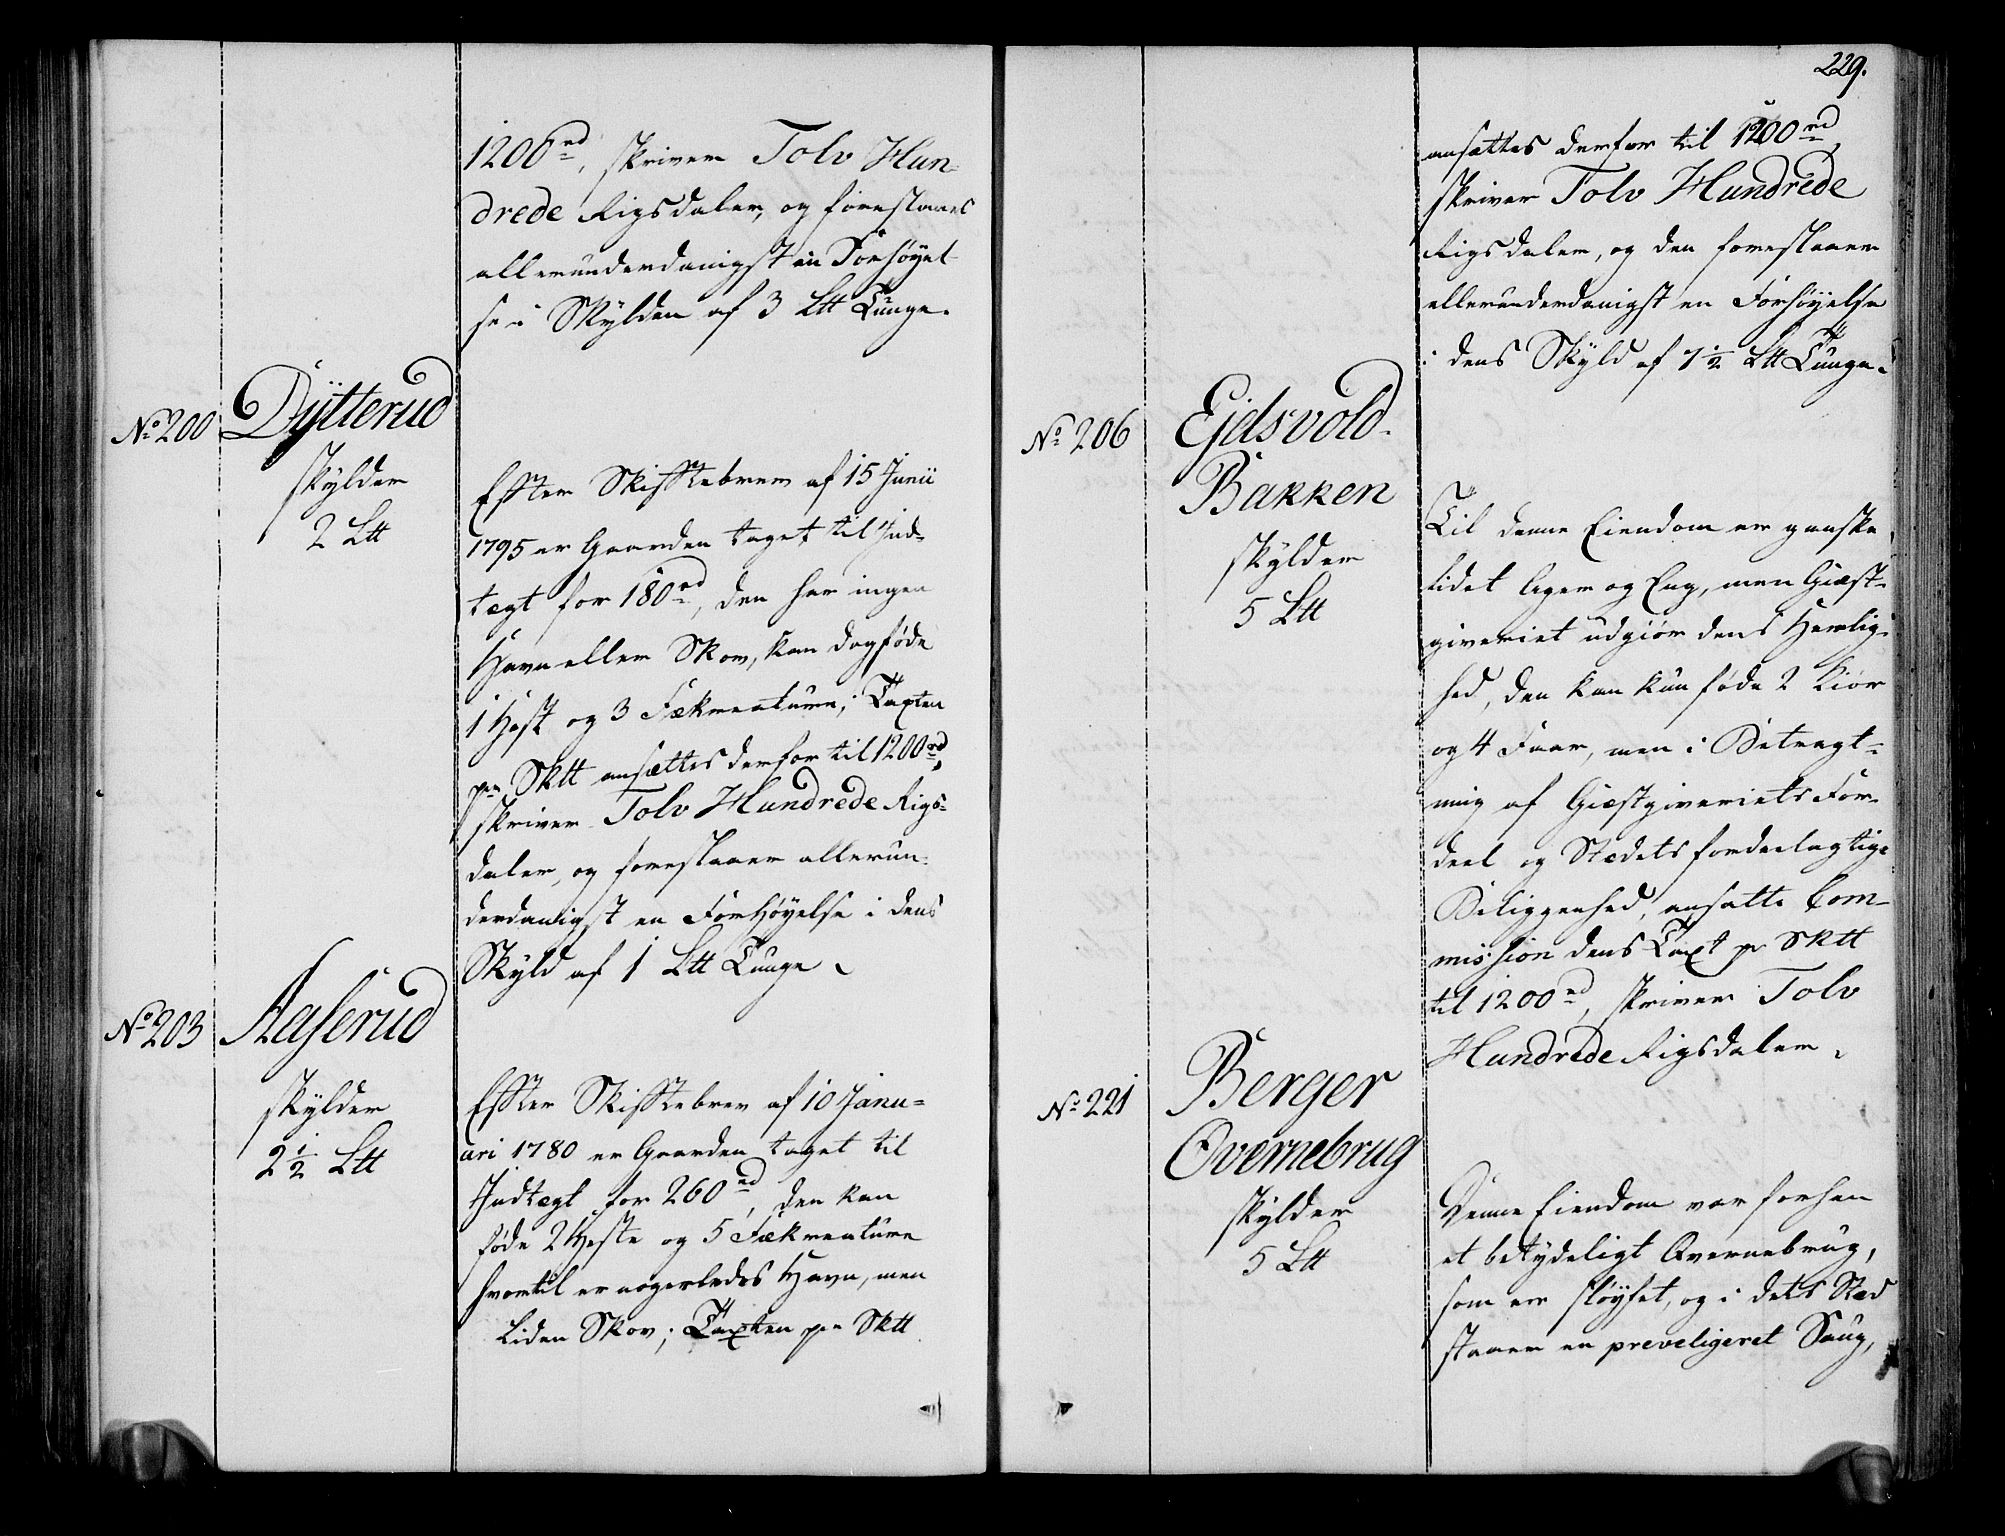 1200 rd, skriver Tolv Hun-
drede Rigsdaler, og foreslaaes
allerunderdanigst en Forhøyel-
se i Skylden af 3 Ltt Tunge.
No 200
Dytterud
skylder
2 Ltt
Efter Skiftebrev af 15 Junii
1795 er Gaarden taget til Ind-
tægt for 180 rd, den har ingen
Havn eller Skov, kan dog føde
1 Hest og 3 Fækreature; Taxten
pr Sktt ansættes derfor til 1200 rd,
skriver Tolv Hundrede Rigs-
daler, og foreslaaer allerun-
derdanigst en Forhøyelse i dens
Skyld af 1 Ltt Tunge.
No 203
Aaserud
skylder
2 1/2 Ltt
Efter Skiftebrev af 10 Janu-
ari 1780 er Gaarden taget til
Indtægt for 260 rd, den kan
føde 2 Heste og 5 Fækreature
hvortil er nogenledes Havn, men
liden Skov; Taxten pr Sktt
229.
ansættes derfor til 1200 rd,
skriver Tolv Hundrede
Rigsdaler, og den foreslaaer
allerunderdanigst en Forhøyelse
i dens Skyld af 1 1/2 Ltt Tunge.
No 206
Ejdsvold-
Bakken
skylder
5 Ltt
Til denne Eiendom er ganske
lidet Ager og Eng, men Giæst-
giveriet udgiør dens Herlig-
hed, den kan kun føde 2 Kiør
og 4 Faar, men i Betragt-
ning af Giæstgiveriets For-
deel og Stædets fordeelagtige
Beliggenhed, ansatte Com-
mission dens Taxt pr Sktt
til 1200 rd, skriver Tolv
Hundrede Rigsdaler.
No 221
Berger
Qvernebrug
skylder
5 Ltt
Denne Eiendom var forhen
et betydeligt Qvernebrug,
som er sløyfet, og i dets Stæd
staaer en preveligeret Saug,